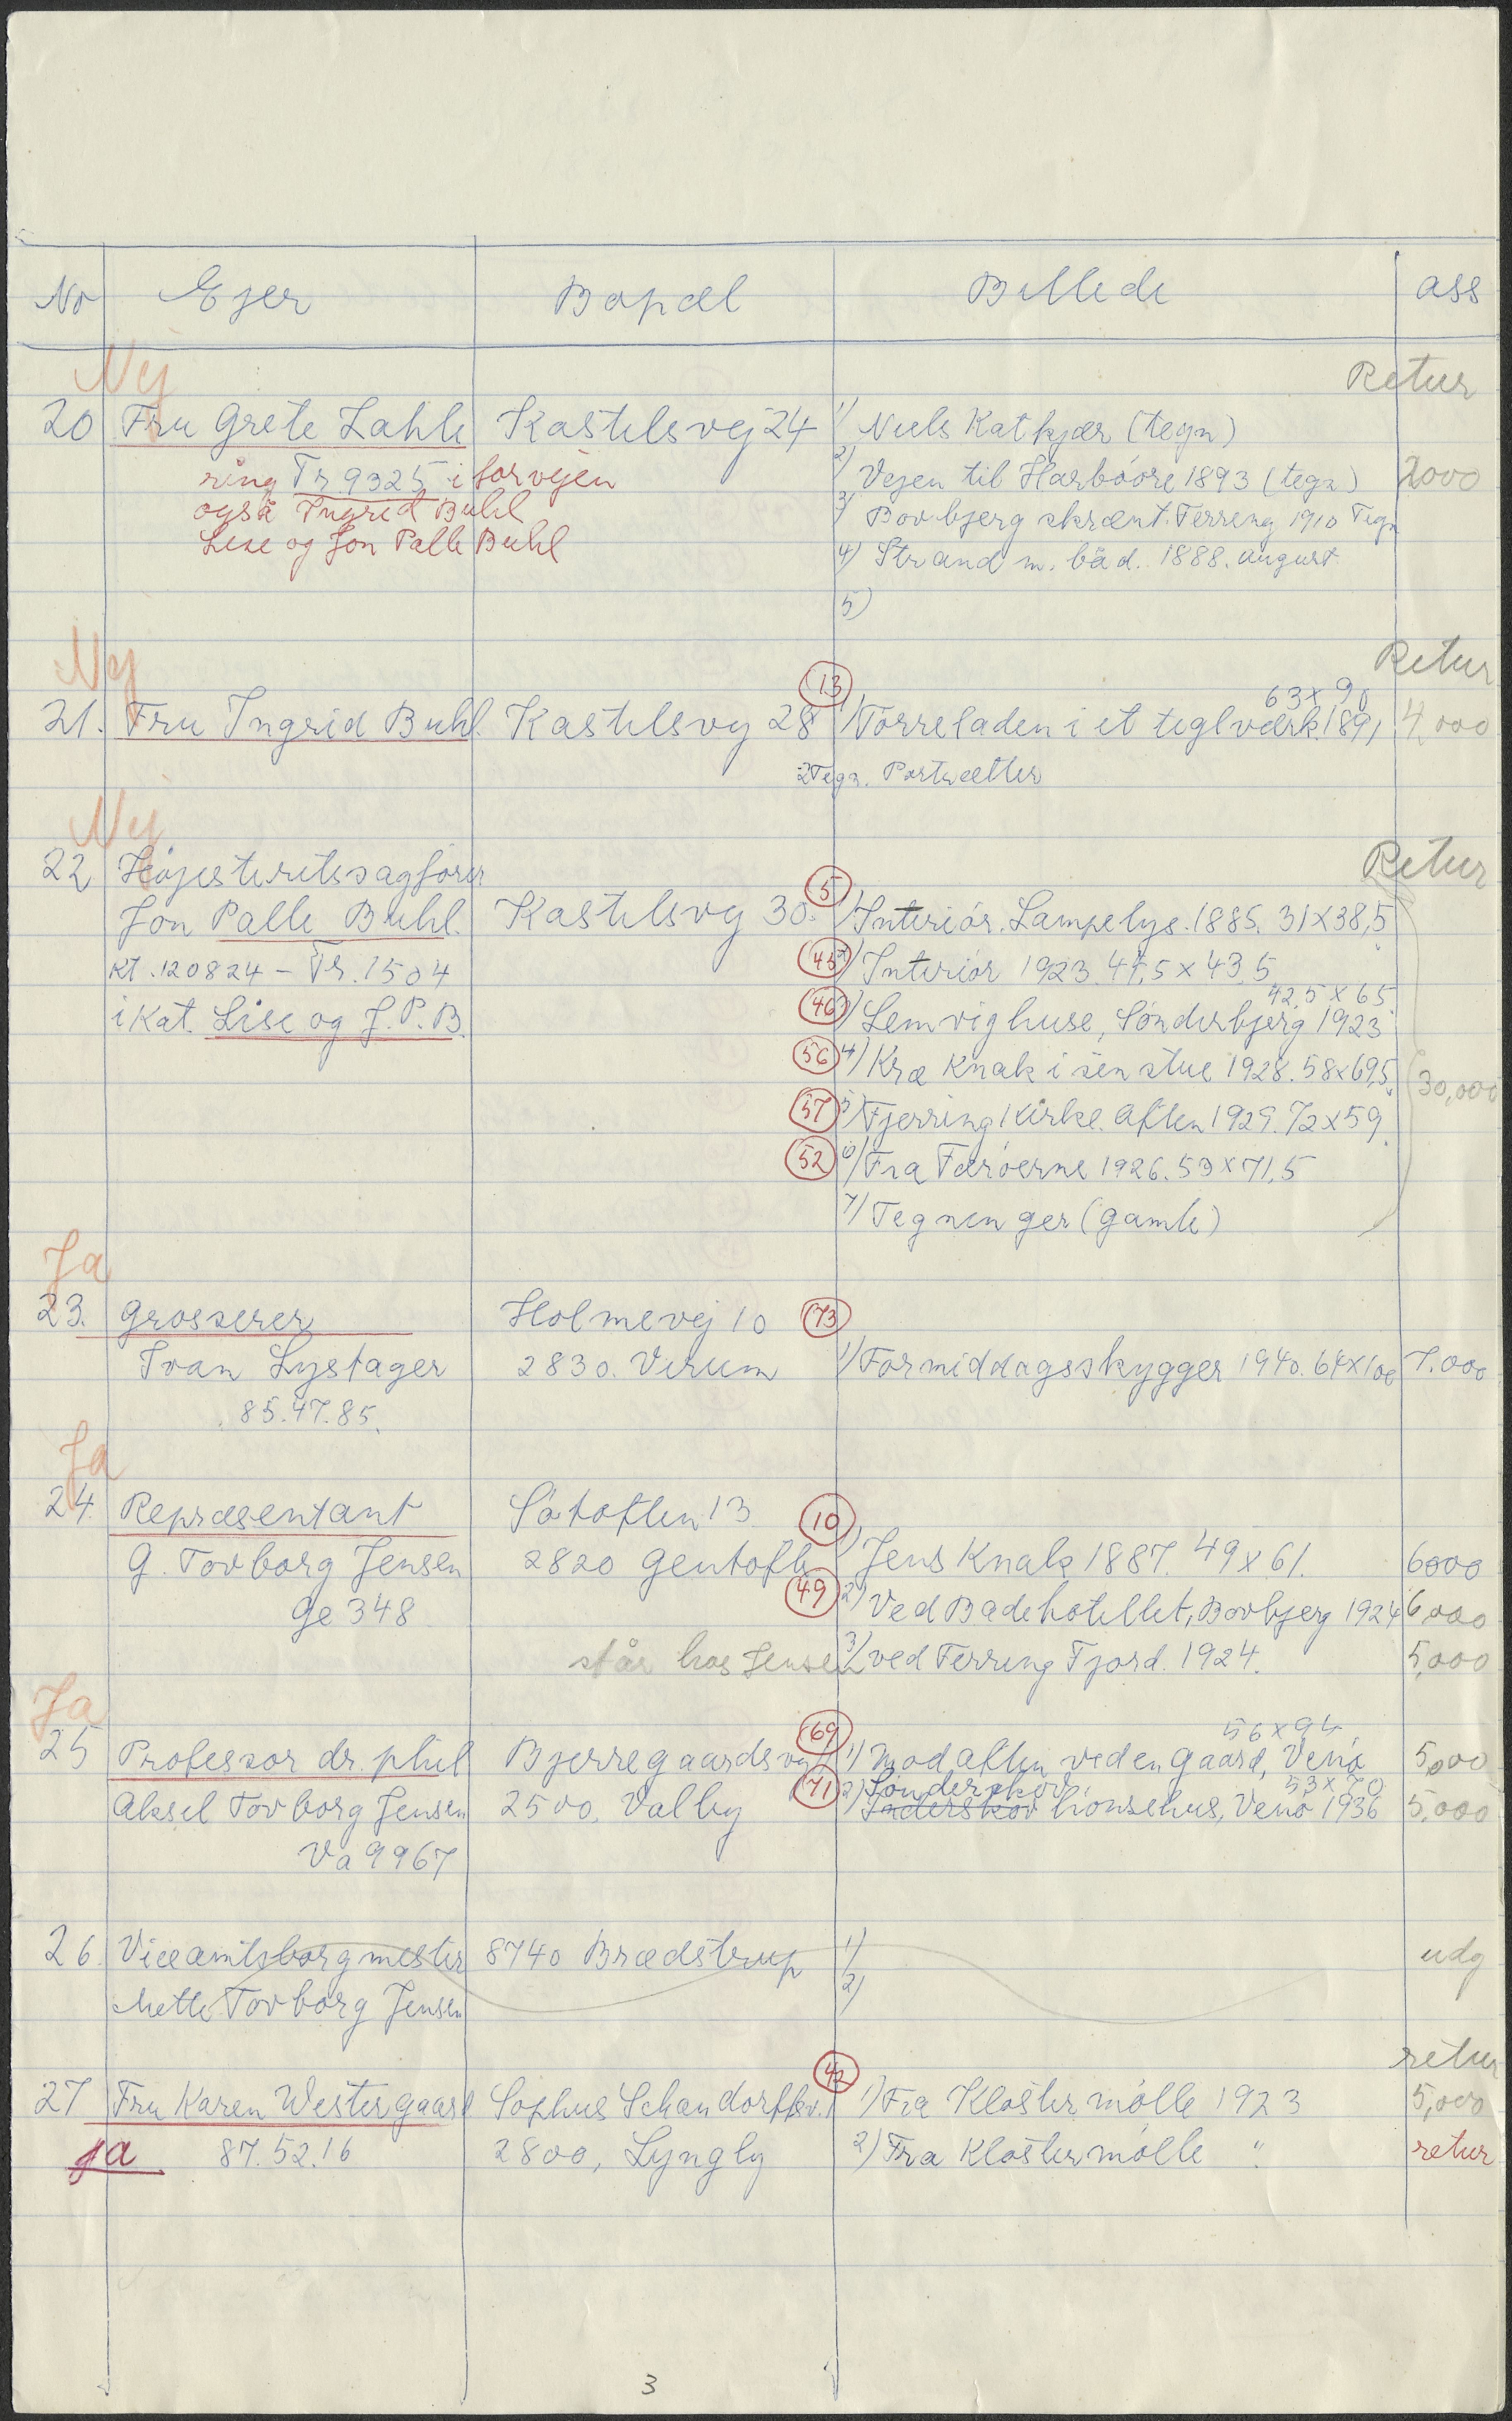 No Ejer Bopæl Billede ass
Nej Retur
20 Fru Grete Lahle Kastelsvej 24 1) Niels Katkjær (tegn)
ring Tr 9325 i forvejen 2) Vejen til Harboöre 1893 (tegn) 2000
også Ingrid Buhl 3) Bovbjerg skrænt. Ferring 1910 Tegn
Lise og Jon Palle Buhl 4) Strand m. båd. 1888. august
5)
Nej Retur
63x90
21. Fru Ingrid Buhl. Kastelsvej 28 (13) 1) Törreladen i et teglværk 1891 4,000
2 Tegn. Portrætter
Nej Retur
22 Höjesteretssagförer
Jon Palle Buhl. Kastelsvej 30. (5) 1) Interiör. Lampelys. 1885. 31x38,5
Kt. 120824 – Tr. 1504 (45) 2) Interiör 1923. 47,5 x 43,5
42,5 x 65
i Kat. Lise og J.P.B. (46) 3) Lemvig huse, Sönderbjerg 1923
(56) 4) Kræ Knak i sin stue 1928. 58x69,5 30,000
(57) 5) Fjerring Kirke. Aften 1929. 72x59
(52) 6) Fra Færöerne 1926. 53x71,5
7) Tegninger (gamle)
Ja
23. Grosserer Holmevej 10 (73)
Ivan Lystager 2830. Virum 1) Formiddagsskygger 1940. 64x100 7.000
85.47.85.
Ja
24. Repræsentant Sötoften 13 (10)
G. Tovborg Jensen 2820 Gentofte 1) Jens Knak 1887. 49x61. 6000
Ge 348 (49) 2) Ved Badehotellet, Bovbjerg 1924 6,000
står hos Jensen 3) ved Ferring Fjord. 1924. 5,000
Ja
56x94
25 Professor dr. phil Bjerregaardsvej (69) 1) Mod aften ved en Gaard, Venö 5,000
Sönderskov 53x70
Aksel Tovborg Jensen 2500. Valby (71) 2) Inderskov hönsehus, Venö 1936 5,000
Va 9967
26. Viceamtsborgmester 8740 Brædstrup 1) udg
Mette Tovborg Jensen 2)
retur
27 Fru Karen Westergaard Sophus Schandorffsv. 1 (42) 1) Fra Klostermölle 1923 5,000
ja 87.52.16 2800, Lyngby 2) Fra Klostermölle " retur
3